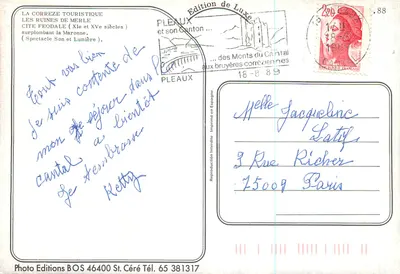 LA CORREZE TOURISTIQUE
LES RUINES DE MERLE
CITE FEODALE ( XIe et XVe siècles )
surplombant la Maronne,
( Spectacle Son et Lumière ).
Edition de Luxe
PLEAUX
et son Canton...
... des Monts du Cantal
aux bruyères corréziennes
PLEAUX
18-8 89
2,20
88
Tout va bien
Je suis contente de
mon séjour dans l
cantal a bientôt
Je t'embrasse
Ketty
Melle Jacqueline
Latif
9 Rue Richer
75009 Paris
Reproduction interdite - Imprimé en Espagne
Photo Editions BOS 46400 St. Céré Tél. 65 381317